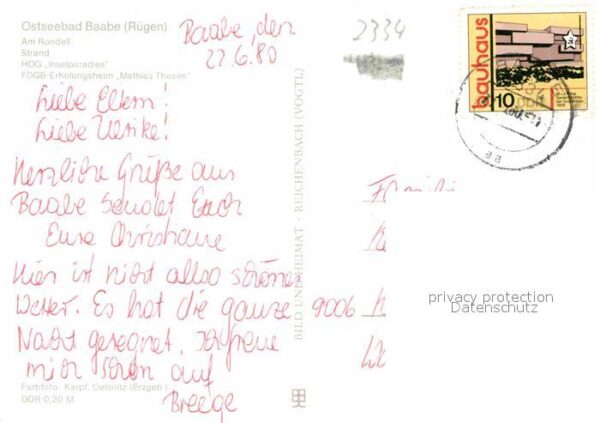 Ostseebad Baabe (Rügen)
Am Rondell
Strand
HOG „Inselparadies"
FDGB-Erholungsheim „Mathias Thesen"
Baabe, den
22.6.80
2334
bauhaus
10
DDR
Liebe Eltern!
Liebe Ulrike!
Herzliche Grüße aus
Baabe sendet Euch
Eure Christiane
Hier ist nicht allso schönes
Wetter. Es hat die ganze
Nacht geregnet. Ich freue
mich schon auf
Breege
9006
BILD UND HEIMAT · REICHENBACH (VOGTL)
privacy protection
Datenschutz
Farbfoto: Karpf, Oelsnitz (Erzgeb.)
DDR 0,20 M